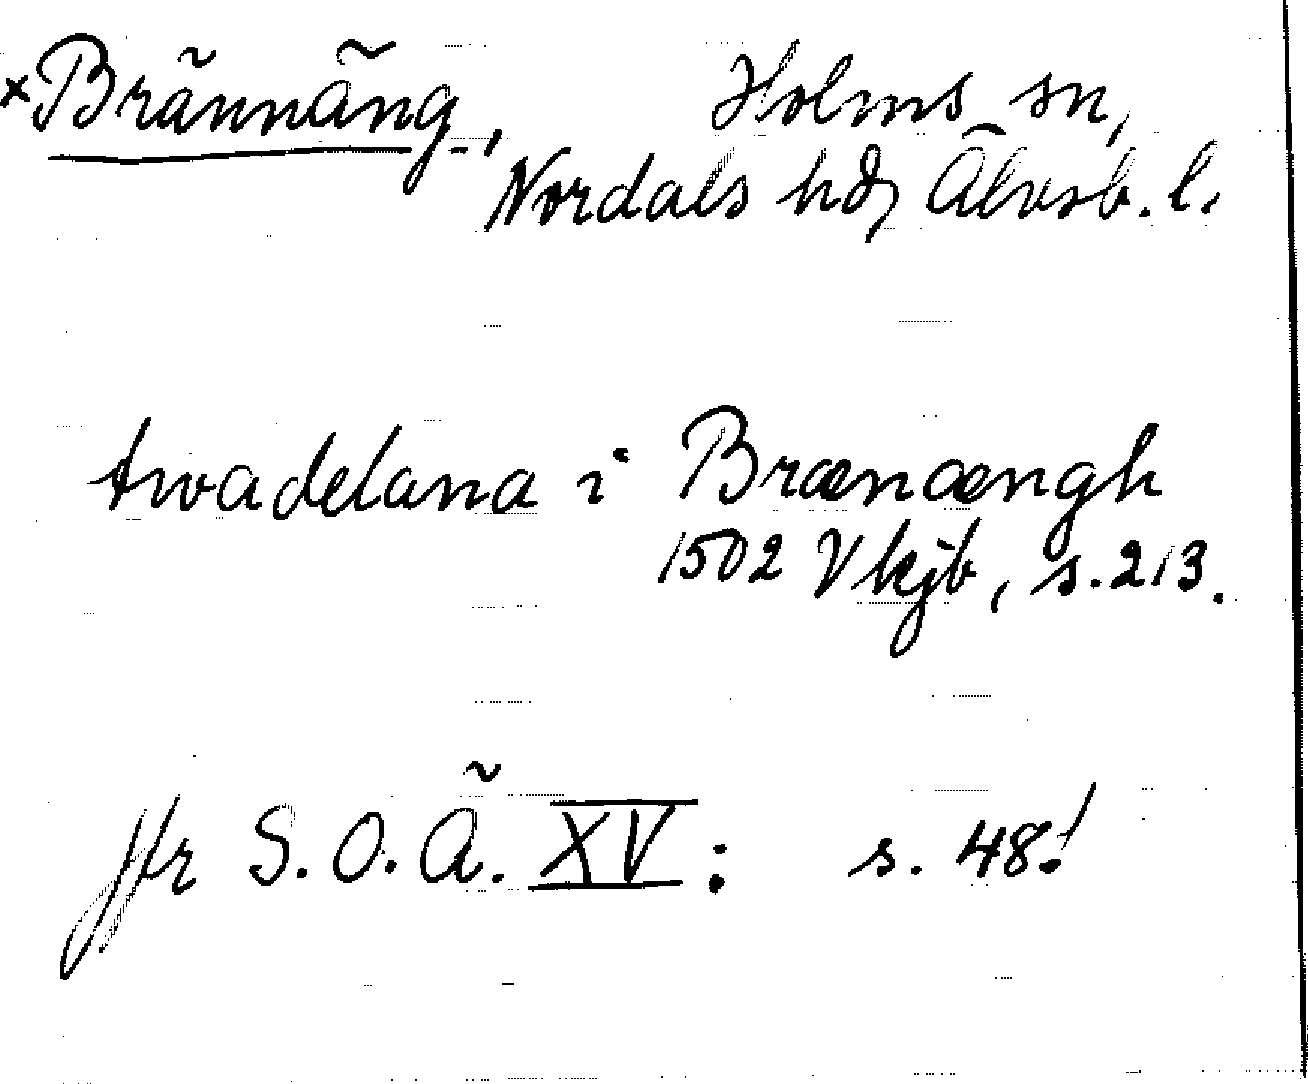 ×Brännäng, Holms sn,
Nordals hd, Älvsb. l.
twadelana i Brænængh
1502 Vkjb, s. 213.
Jfr S. O. Ä. XV: s. 48!